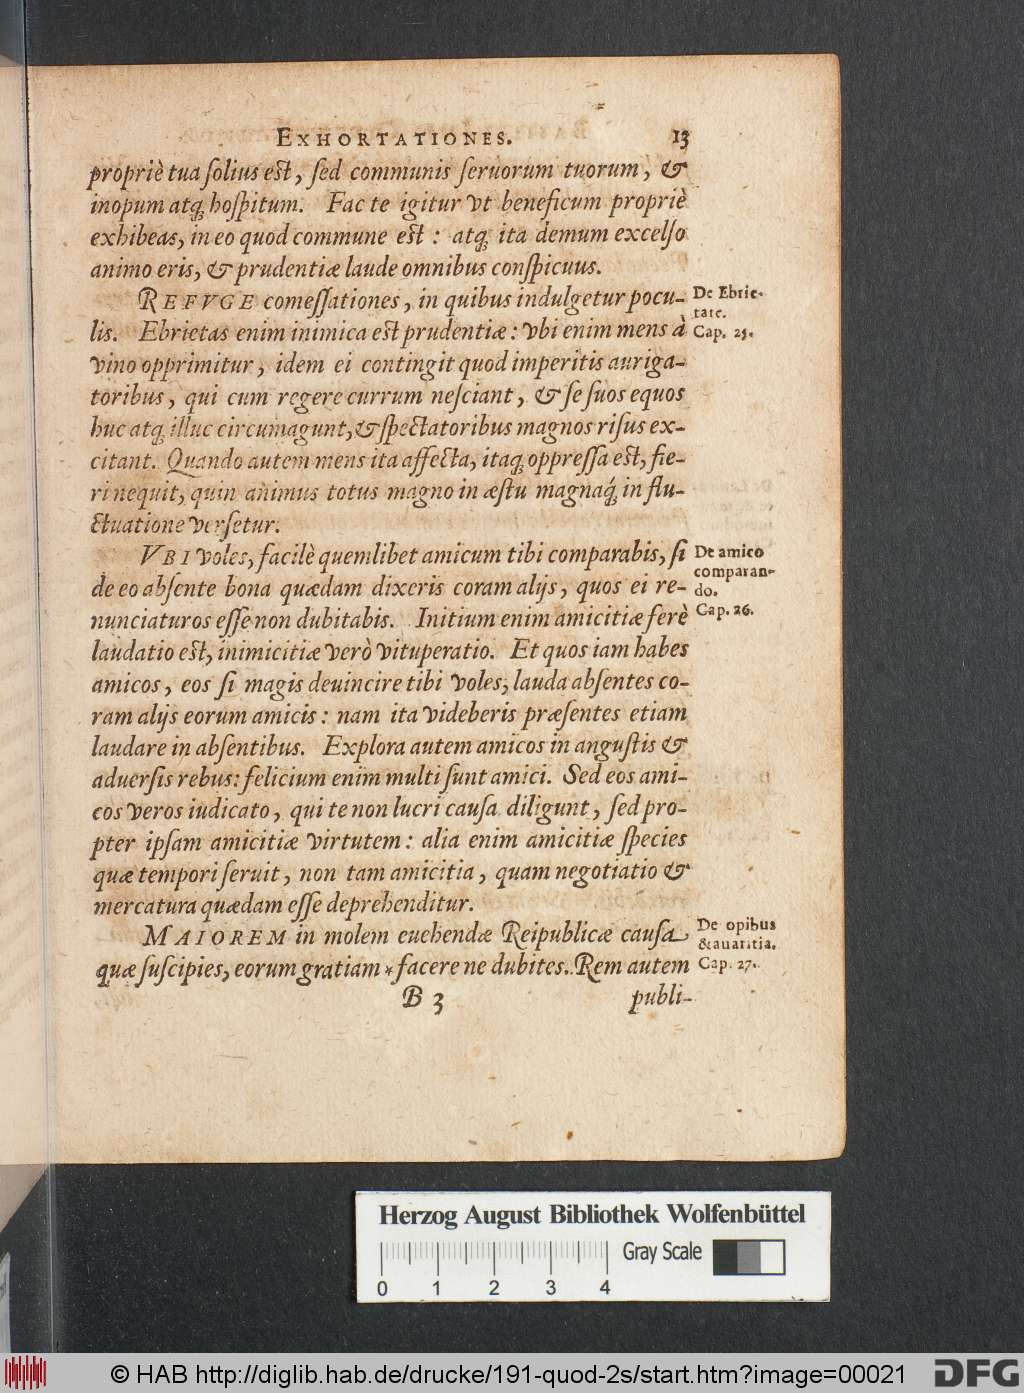 EXHORTATIONES. 13
propriè tua ſolius est, ſed communis ſeruorum tuorum, &
inopum atq; hoſpitum. Fac te igitur vt beneficum propriè
exhibeas, in eo quod commune est : atq; ita demum excelſo
animo eris, & prudentiæ laude omnibus conſpicuus.
REFVGE comeſſationes, in quibus indulgetur pocu-
lis. Ebrietas enim inimica est prudentiæ : vbi enim mens à
vino opprimitur, idem ei contingit quod imperitis auriga-
toribus, qui cum regere currum neſciant, & ſe ſuos equos
huc atq; illuc circumagunt, & ſpectatoribus magnos riſus ex-
citant. Quando autem mens ita affecta, itaq; oppreſſa est, fie-
ri nequit, quin animus totus magno in æstu magnaq́; in flu-
ctuatione verſetur.
De Ebrie-
tate.
Cap. 25.
VBI voles, facilè quemlibet amicum tibi comparabis, ſi
de eo abſente bona quædam dixeris coram alijs, quos ei re-
nunciaturos eſſe non dubitabis. Initium enim amicitiæ ferè
laudatio est, inimicitiæ verò vituperatio. Et quos iam habes
amicos, eos ſi magis deuincire tibi voles, lauda abſentes co-
ram alijs eorum amicis : nam ita videberis præſentes etiam
laudare in abſentibus. Explora autem amicos in anguſtis &
aduerſis rebus: felicium enim multi ſunt amici. Sed eos ami-
cos veros iudicato, qui te non lucri cauſa diligunt, ſed pro-
pter ipſam amicitiæ virtutem : alia enim amicitiæ ſpecies
quæ tempori ſeruit, non tam amicitia, quam negotiatio &
mercatura quædam eſſe deprehenditur.
De amico
comparan-
do.
Cap. 26.
MAIOREM in molem euehendæ Reipublicæ cauſa
quæ ſuſcipies, eorum gratiam * facere ne dubites. Rem autem
De opibus
& auaritia.
Cap. 27.
B 3 publi-
Herzog August Bibliothek Wolfenbüttel
Gray Scale
0 1 2 3 4
© HAB http://diglib.hab.de/drucke/191-quod-2s/start.htm?image=00021
DFG